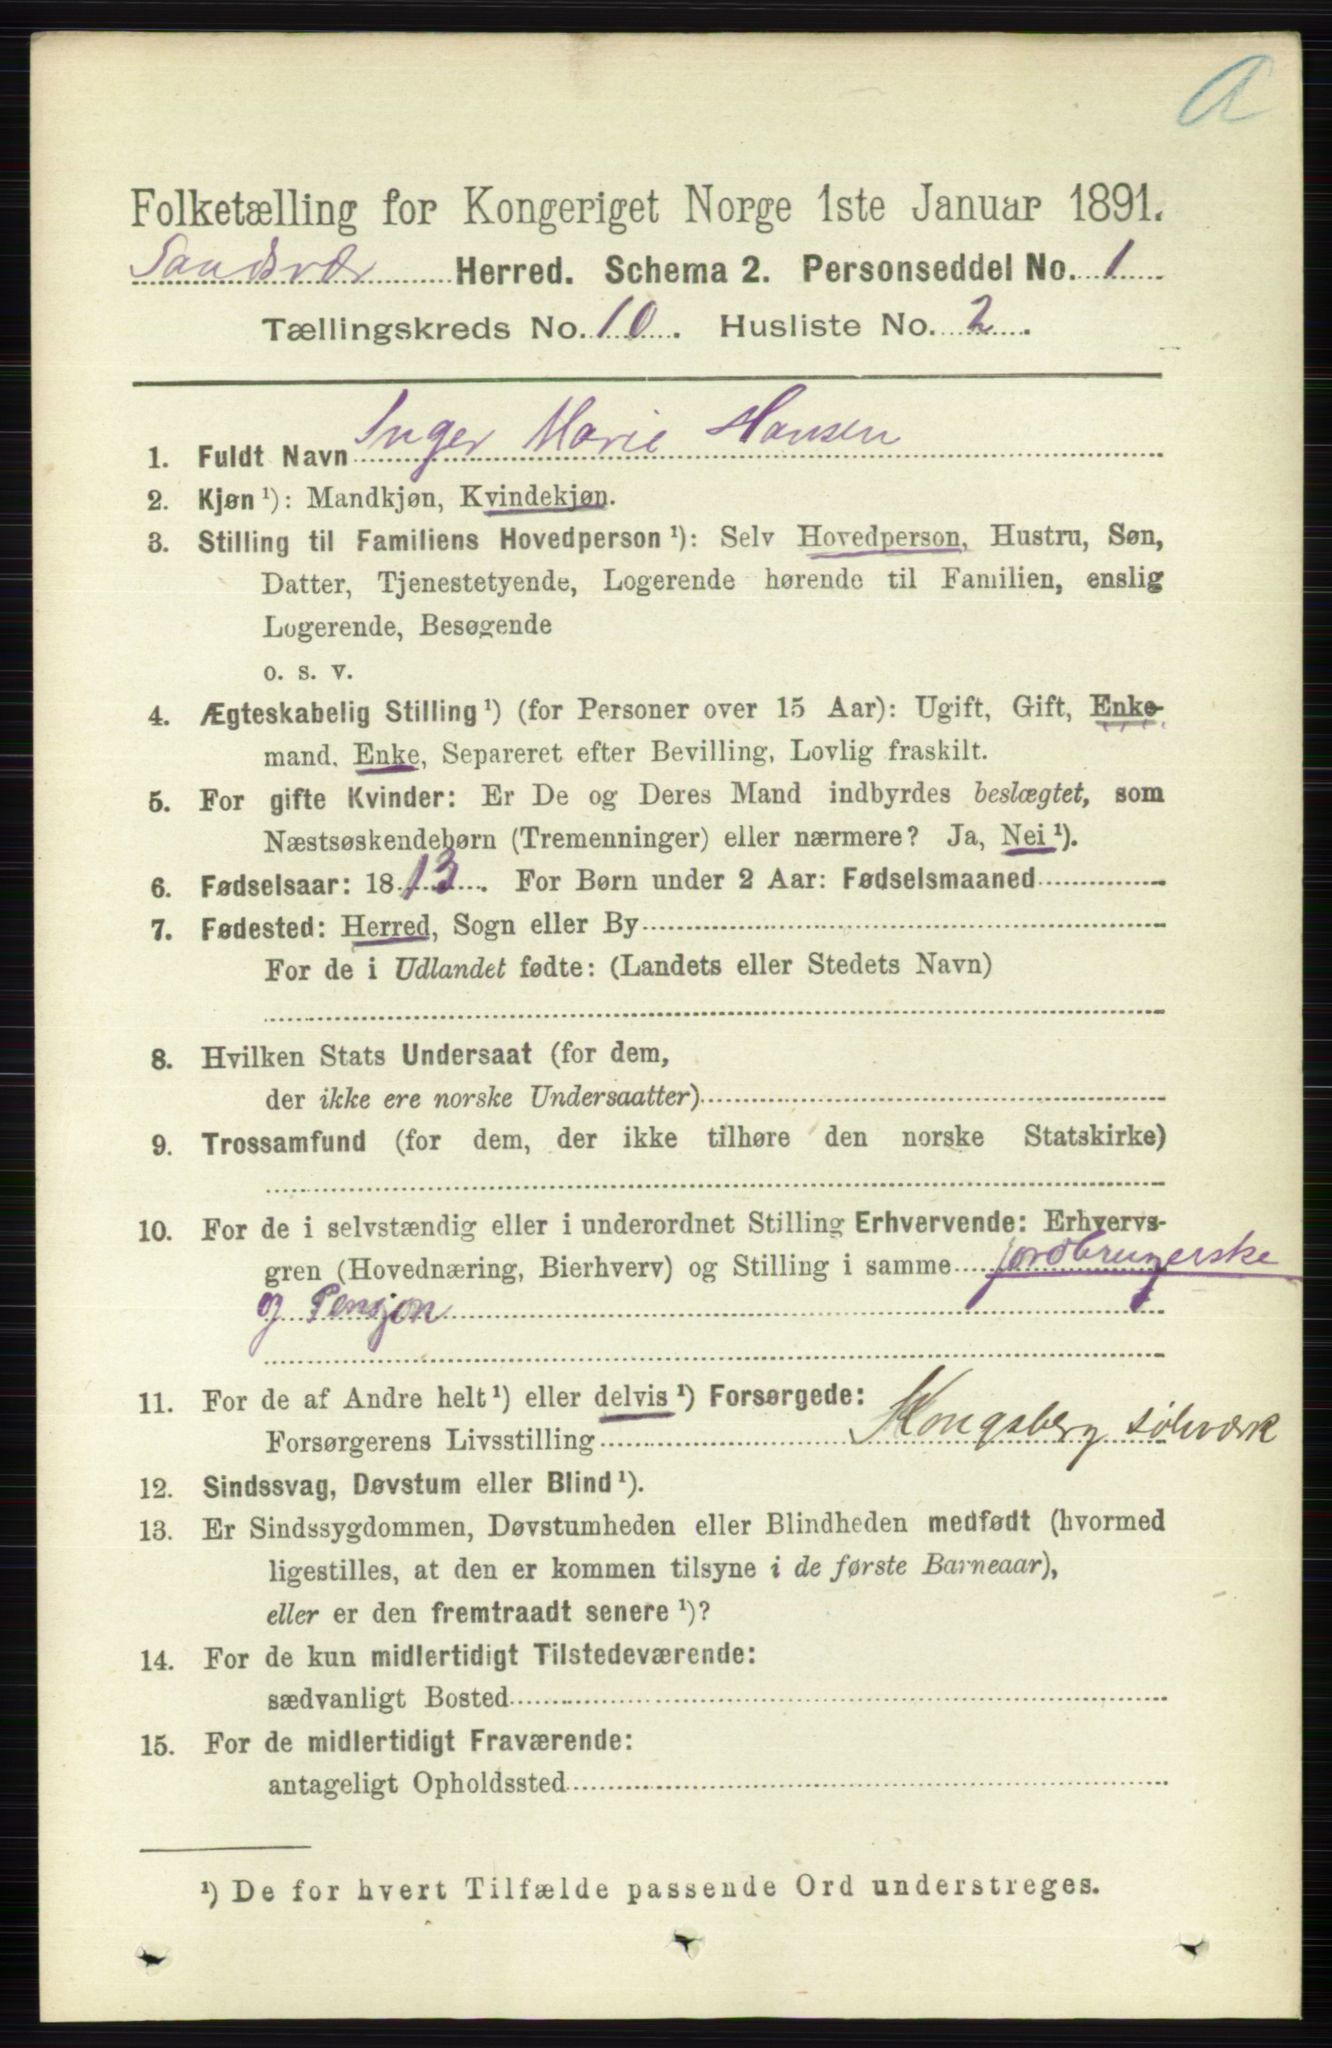 A
Folketælling for Kongeriget Norge 1ste Januar 1891.
Sandsvær Herred. Schema 2. Personseddel No. 1
Tællingskreds No. 10. Husliste No. 2.
1. Fuldt Navn Inger Marie Hansen
2. Kjøn ¹): Mandkjøn, Kvindekjøn.
3. Stilling til Familiens Hovedperson ¹): Selv Hovedperson, Hustru, Søn,
Datter, Tjenestetyende, Logerende hørende til Familien, enslig
Logerende, Besøgende
o. s. v.
4. Ægteskabelig Stilling ¹) (for Personer over 15 Aar): Ugift, Gift, Enke-
mand, Enke, Separeret efter Bevilling, Lovlig fraskilt.
5. For gifte Kvinder: Er De og Deres Mand indbyrdes beslægtet, som
Næstsøskendebørn (Tremenninger) eller nærmere? Ja, Nei ¹).
6. Fødselsaar: 1813. For Børn under 2 Aar: Fødselsmaaned
7. Fødested: Herred, Sogn eller By
For de i Udlandet fødte: (Landets eller Stedets Navn)
8. Hvilken Stats Undersaat (for dem,
der ikke ere norske Undersaatter)
9. Trossamfund (for dem, der ikke tilhøre den norske Statskirke)
10. For de i selvstændig eller i underordnet Stilling Erhvervende: Erhvervs-
gren (Hovednæring, Bierhverv) og Stilling i samme jordbrugerske
og Pensjon
11. For de af Andre helt ¹) eller delvis ¹) Forsørgede:
Forsørgerens Livsstilling Kongsberg sølvværk
12. Sindssvag, Døvstum eller Blind ¹).
13. Er Sindssygdommen, Døvstumheden eller Blindheden medfødt (hvormed
ligestilles, at den er kommen tilsyne i de første Barneaar),
eller er den fremtraadt senere ¹)?
14. For de kun midlertidigt Tilstedeværende:
sædvanligt Bosted
15. For de midlertidigt Fraværende:
antageligt Opholdssted
¹) De for hvert Tilfælde passende Ord understreges.